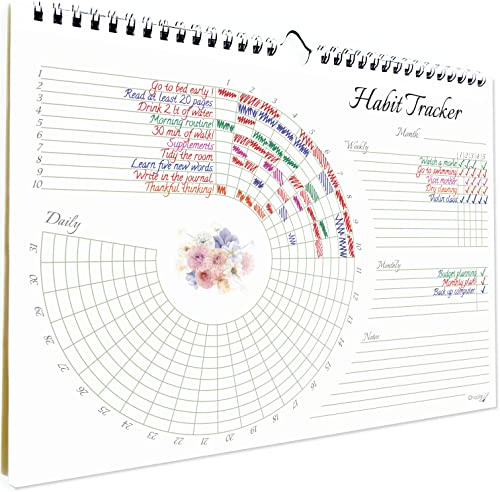 Habit Tracker
Month:
1 Go to bed early!
2 Read at least 20 pages
3 Drink 2 lt of water
4 Morning routine!
5 30 min of walk!
6 Supplements
7 Tidy the room
8 Learn five new words
9 Write in the journal
10 Thankful thinking!
1 2 3 4 5 6 7 8 9 10 11 12 13 14 15 16 17 18 19 20 21 22 23 24 25 26 27 28 29 30 31
Daily
Weekly
1 2 3 4 5
Watch a movie
Go to swimming
Visit mother
Dry cleaning
Violin class
Monthly
Budget planning
Monthly plan
Back up computer
Notes